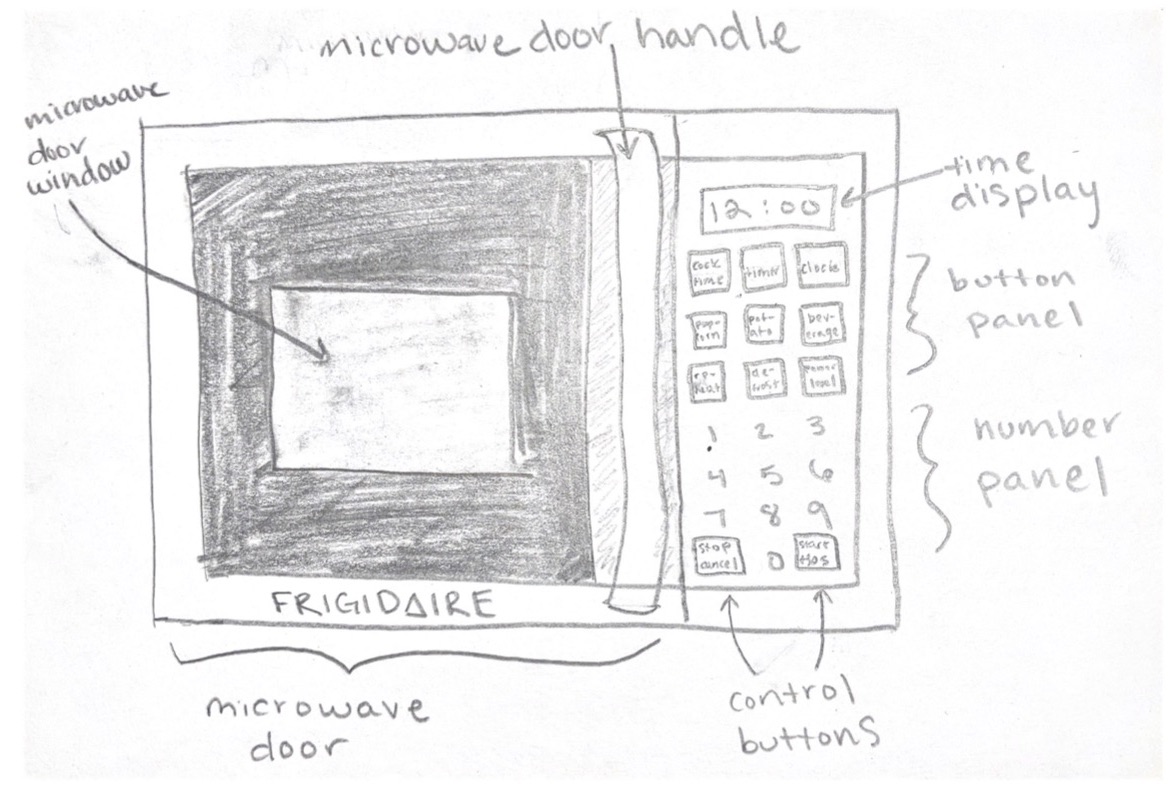 microwave door handle
microwave
door
window
12:00
time
display
cook
time
timer
clock
pop-
corn
pot-
ato
bev-
erage
re-
heat
de-
frost
power
level
button
panel
1 2 3
4 5 6
7 8 9
number
panel
stop
cancel
0
start
+30s
FRIGIDAIRE
microwave
door
control
buttons